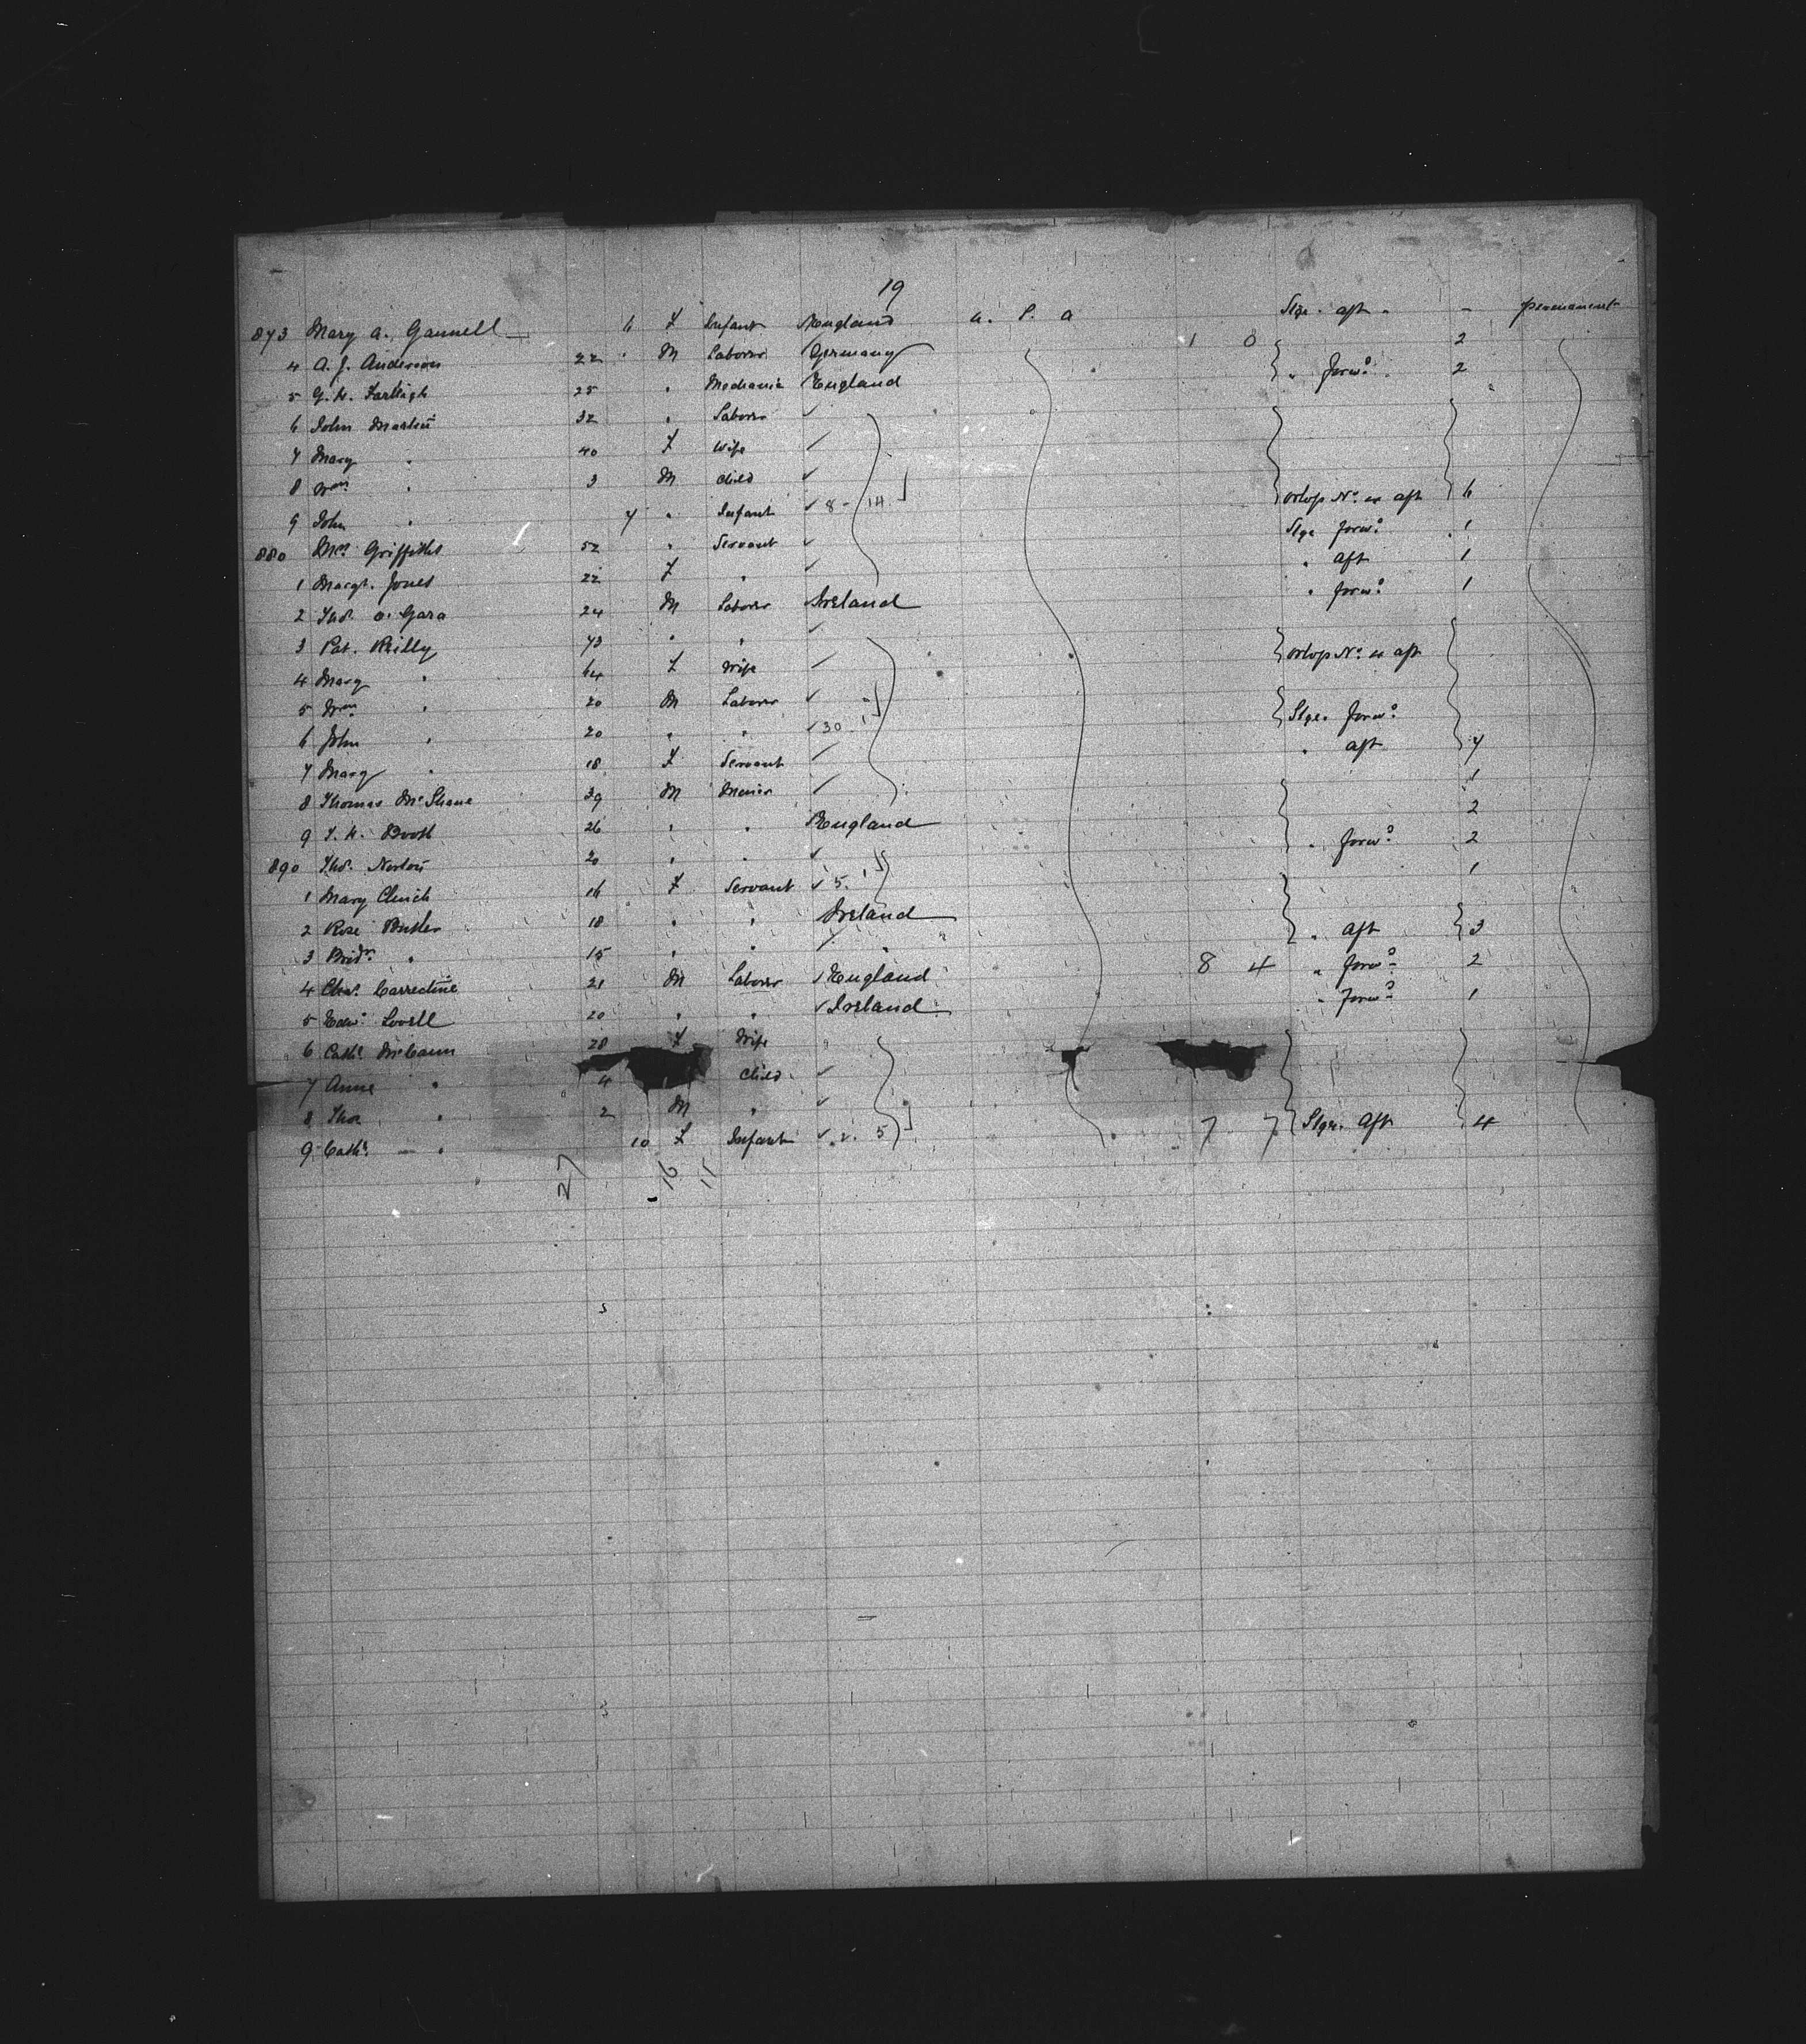 19
873 Mary A. Gannell 6 F Infant England U. S. A Stge. aft " - permanent
4 A. J. Anderson 22 M Laborer Germany 1 0 2
5 G. H. Farleigh 25 " Mechanic England " forwd. 2
6 John Martin 32 " Laborer ✓
7 Mary " 40 F Wife ✓
8 Wm " 3 M Child ✓
9 John " 7 " Infant ✓ 8 - 14 Orlop No. 4 aft 6
880 Griffiths 52 " Servant ✓ Stge forwd. 1
1 Margt. Jones 22 F " ✓ " aft 1
2 Thos. O'Gara 24 M Laborer Ireland " forwd. 1
3 Pat. Reilly 73 " " ✓
4 Mary " 64 F Wife ✓ Orlop No. 4 aft
5 Wm " 20 M Laborer ✓
6 John " 20 " " ✓ 30 Stge. forwd.
7 Mary " 18 F Servant ✓ " aft 7
8 Thomas McShane 39 M Miner ✓ 1
9 T. H. Booth 26 " " England 2
890 Thos. Norton 20 " " ✓ " forwd. 2
1 Mary Clinch 16 F Servant ✓ 5. 1 1
2 Rose Butler 18 " " Ireland
3 Bridt. " 15 " " ✓ " aft 3
4 Chas. 21 M Laborer ✓ England 8 4 " forwd. 2
5 Edwd. Lovell 20 " " ✓ Ireland " forwd. 1
6 Cathe. McCann 28 F Wife "
7 Anne " 4 Child ✓
8 Thos " 2 M " ✓
9 Cathe. " 10 F Infant ✓ 5 7 7 Stge. Aft 4
27 16 11